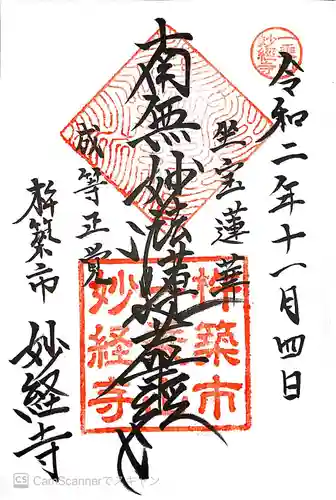 一乗山
妙経寺
令和二年十一月四日
坐宝蓮華
南無妙法蓮華経
成等正覚
杵築市
妙経寺
杵築市
妙経寺
CS CamScannerでスキャン